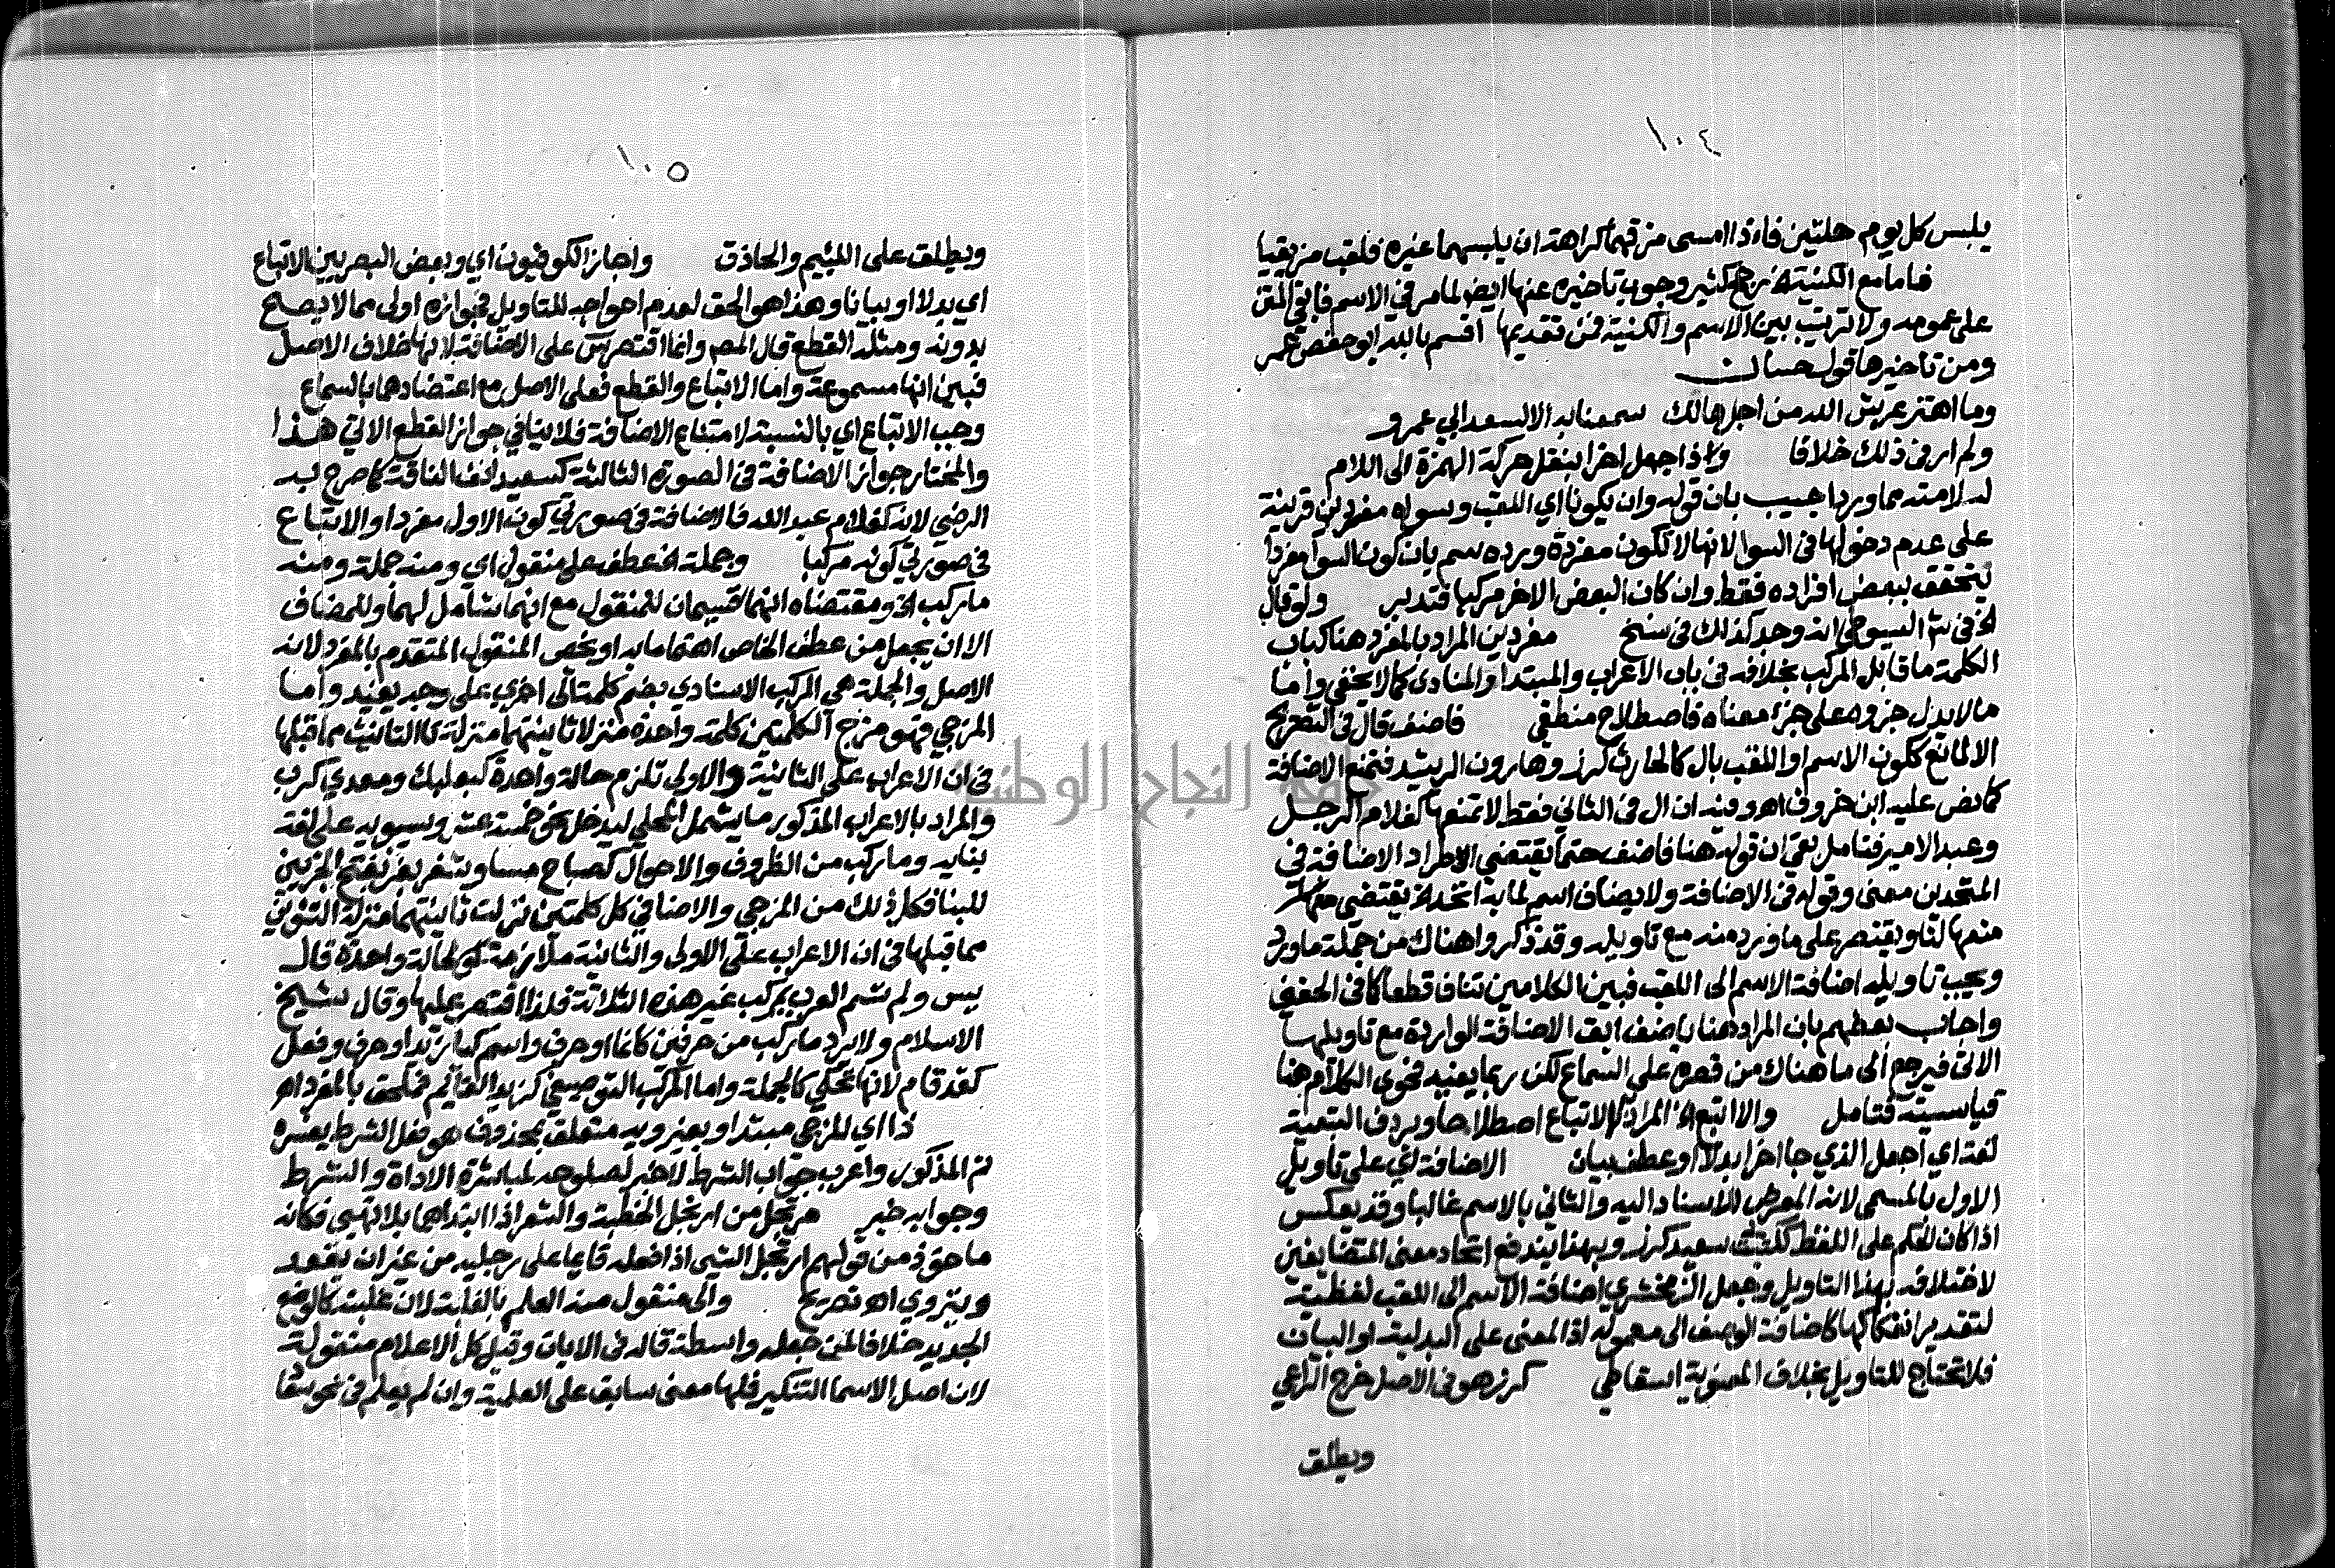 ١٠٤
يلبس كل يوم حلتين فاذا امسى مزقهما كراهة ان يلبسهما غيره فلقب مزيقيا
فاما مع الكنية الخ رجح كثير وجوب تاخيره عنها ايضا لما مر في الاسم فابقى المتن
على عمومه ولا ترتيب بين الاسم والكنية فمن تقديمها اقسم بالله ابو حفص عمر
ومن تاخيرها قول حسان
وما اهتز عرش الله من اجل هالك سمعنا به الا لسعد ابي عمرو
ولم ار في ذلك خلافا ولذا جعل اخرا بنقل حركة الهمزة الى اللام
لسلامته مما ويرد اجيب بان قوله وان يكونا اي اللقب وسواه مفردين قرينة
على عدم دخولها في السوا لانها لا تكون مفردة ويرده سم بان كون السوا مفردا
يتحقق ببعض افراده فقط وان كان البعض الاخر مركبا فتدبر ولو قال
الخ في ش السيوطي انه وجد كذلك في نسخ مفردين المراد بالمفرد هنا كباب
الكلمة ما قابل المركب بخلافه في باب الاعراب والمبتدا والمنادى كما لا يخفى واما
ما لا يدل جزوه على جزء معناه فاصطلاح منطقي فاضف قال في التصريح
الا لمانع ككون الاسم او اللقب بال كالحارث كرز وهارون الرشيد فتمتنع الاضافة
كما نص عليه ابن خروف اهـ وفيه ان ال في الثاني فقط لا تمنعها كغلام الرجل
وعبد الامير فتامل بقي ان قوله هنا فاضف حتما يقتضي الاطراد الاضافة في
المتحدين معنى وقوله في الاضافة ولا يضاف اسم لما به اتحد الخ يقتضي
منعها لنا ويقتصر على ما ورد منه مع تاويله وقد ذكروا هناك من جملة ما ورد
ويجب تاويله اضافة الاسم الى اللقب فبين الكلامين تناف قطعا كما في الحفني
واجاب بعضهم بان المراد هنا باضف ابق الاضافة الواردة مع تاويلها
الاتي فيرجع الى ما هناك من قصره على السماع لكن ربما يعنيه فحوى الكلام هنا
قياسية فتامل والا اتبع الخ المراد الاتباع اصطلاحا ويردف التبعية
لغة اي اجعل الذي جا اخرا بدلا او عطف بيان الاضافة اي على تاويل
الاول بالمسمى لانه المعرض للاسناد اليه والثاني بالاسم غالبا وقد يعكس
اذا كان الحكم على اللفظ ككتبت سعيد كرز وبهذا يندفع اتحاد معنى المتضايفين
لاختلافه بهذا التاويل وجعل الزمخشري اضافة الاسم الى اللقب لفظية
لتقدير انفكاكها كاضافة الوصف الى معموله اذ المعنى على البدلية او البيان
فلا تحتاج للتاويل بخلاف المعنوية اسقاطي كرز هو في الاصل خرج الراعي
ويطلق
١٠٥
ويطلق على اللئيم والحاذق واجاز الكوفيون اي وبعض البصريين الاتباع
اي بدلا او بيانا وهذا هو الحق لعدم احواجه للتاويل فجوازه اولى مما لا يصح
بدونه ومثله القطع قال المص وانما اقتصر س على الاضافة لانها خلاف الاصل
فبين انها مسموعة واما الاتباع والقطع فعلى الاصل مع اعتضادهما بالسماع
وجب الاتباع اي بالنسبة لامتناع الاضافة فلا ينافي جواز القطع الاتي هذا
والمختار جواز الاضافة في الصورة الثالثة كسعيد انف الناقة كما صرح به
الرضي لانه كغلام عبد الله فالاضافة في صورتي كون الاول مفردا والاتباع
في صورتي كونه مركبا وجملة الخ عطف على منقول اي ومنه جملة ومنه
ما ركب الخ ومقتضاه انهما قسيمان للمنقول مع انه شامل لهما وللمضاف
الا ان يجعل من عطف الخاص اهتماما به او يخص المنقول المتقدم بالمفرد لانه
الاصل والجملة هي المركب الاسنادي بضم كلمة الى اخرى على وجه يفيد واما
المزجي فهو مزج الكلمتين كلمة واحدة منزلا ثانيتهما منزلة تا التانيث مما قبلها
في ان الاعراب على الثانية والاولى تلزم حالة واحدة كبعلبك ومعدي كرب
والمراد بالاعراب المذكور ما يشمل المحلي ليدخل نحو خمسة عشر وسيبويه على لغة
بنايه وما ركب من الظروف والاحوال كصباح مسا وشغر بغر بفتح الجزءين
للبنا فكل ذلك من المزجي والاضافي كل كلمتين نزلت ثانيتهما منزلة التنوين
مما قبلها في ان الاعراب على الاولى والثانية ملازمة لحالة واحدة قال
يس ولم تسم العرب بمركب غير هذه الثلاثة فلذا اقتصر عليها وقال شيخ
الاسلام ولا يرد ما ركب من حرفين كانما او حرف واسم كيا زيد او حرف وفعل
كقد قام لانها تحكي كالجملة واما المركب التوصيفي كزيد القائم فملحق بالمفرد اهـ
ذا اي المزجي مبتدا وبغير ويه متعلق بمحذوف هو فعل الشرط يفسره
تم المذكور واعرب جواب الشرط لا خبر لصلوحه لمباشرة الاداة والشرط
وجوابه خبر مرتجل من ارتجل الخطبة والشعر اذا ابتداهما بلا تهيي فكانه
ماخوذ من قولهم ارتجل الشي اذا فعله قايما على رجليه من غير ان يقعد
ويتروى اهـ تصريح والى منقول منه العلم بالغلبة لان غلبته كالوضع
الجديد خلافا لمن جعله واسطة قاله في الايات وقيل كل الاعلام منقولة
لان اصل الاسما التنكير فلها معنى سابق على العلمية وان لم يعلم في نحو سعاد
جامعة النجاح الوطنية